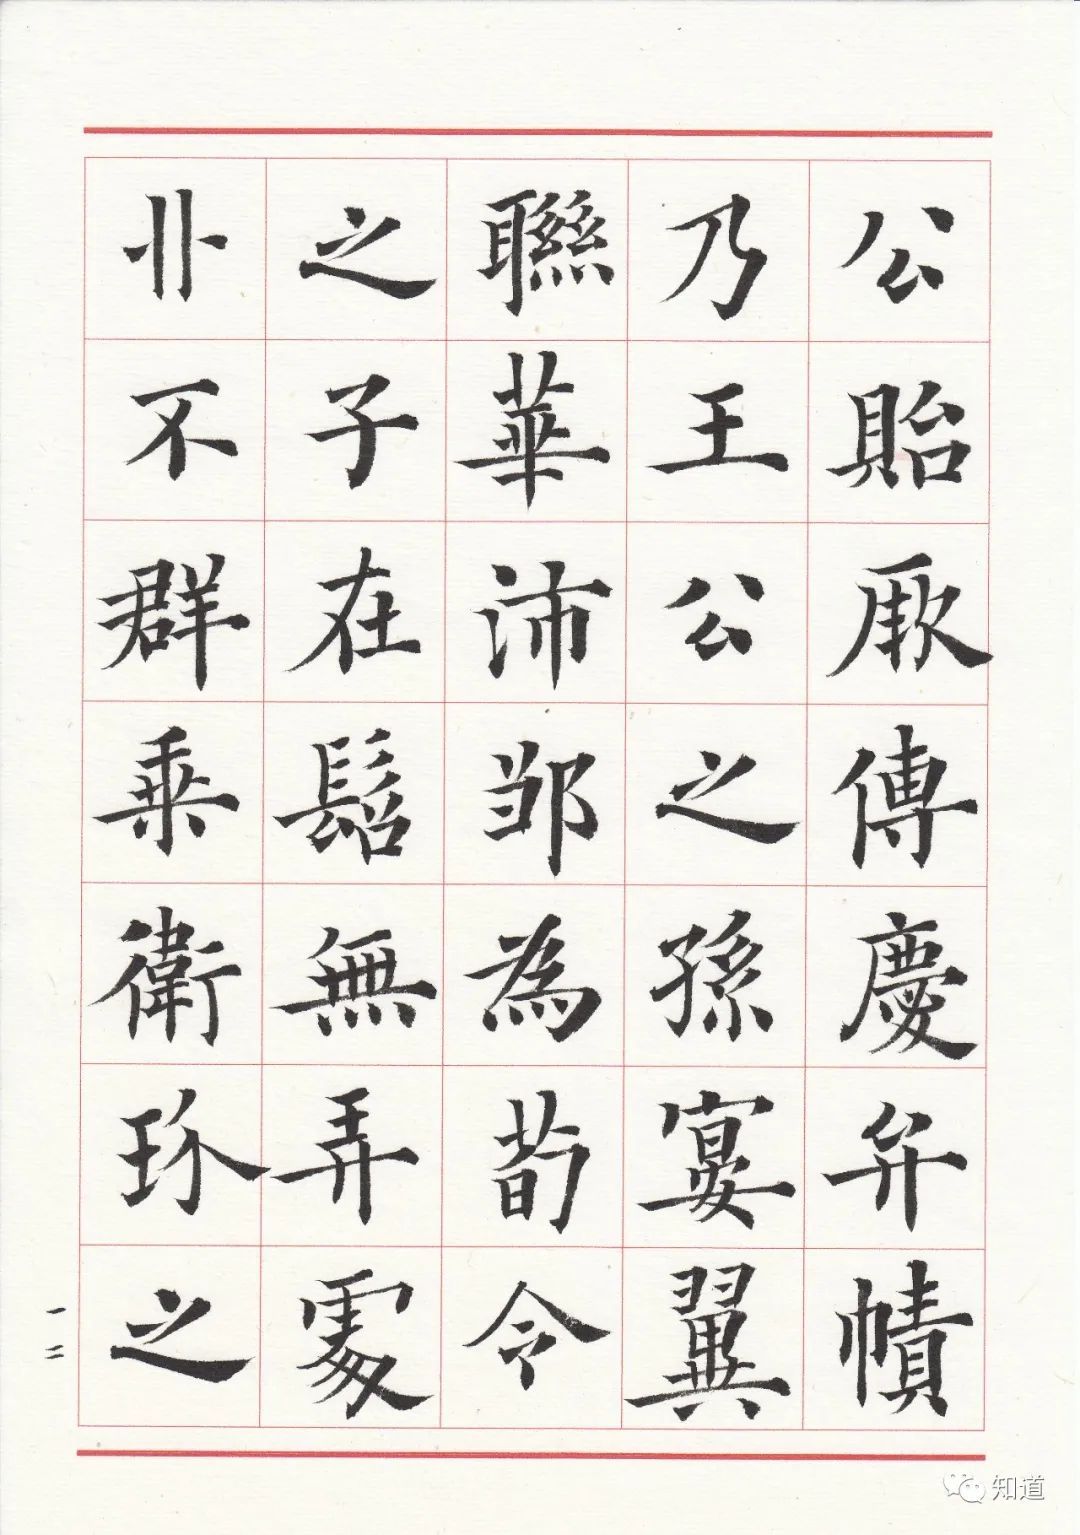 公貽厥傳慶弁幘
乃王公之孫宴翼
聯華沛邹為荀令
之子在髫無弄處
丱不群乗衛玠之
一二
知道